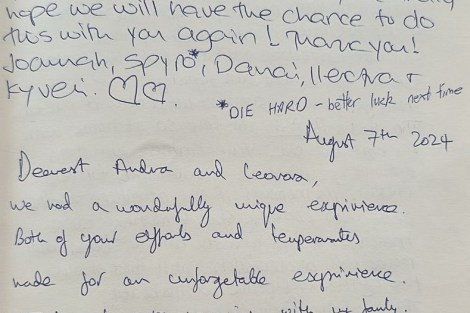 hope we will have the chance to do
this with you again! Thank you!
Joannah, Spyro*, Danai, Ilectra +
Kyveli. ♡♡.
*DIE HARD - better luck next time
August 7th 2024
Dearest Andra and
we had a wonderfully unique expirience.
Both of your efforts and temperamates
made for an unforgetable expirience.
with